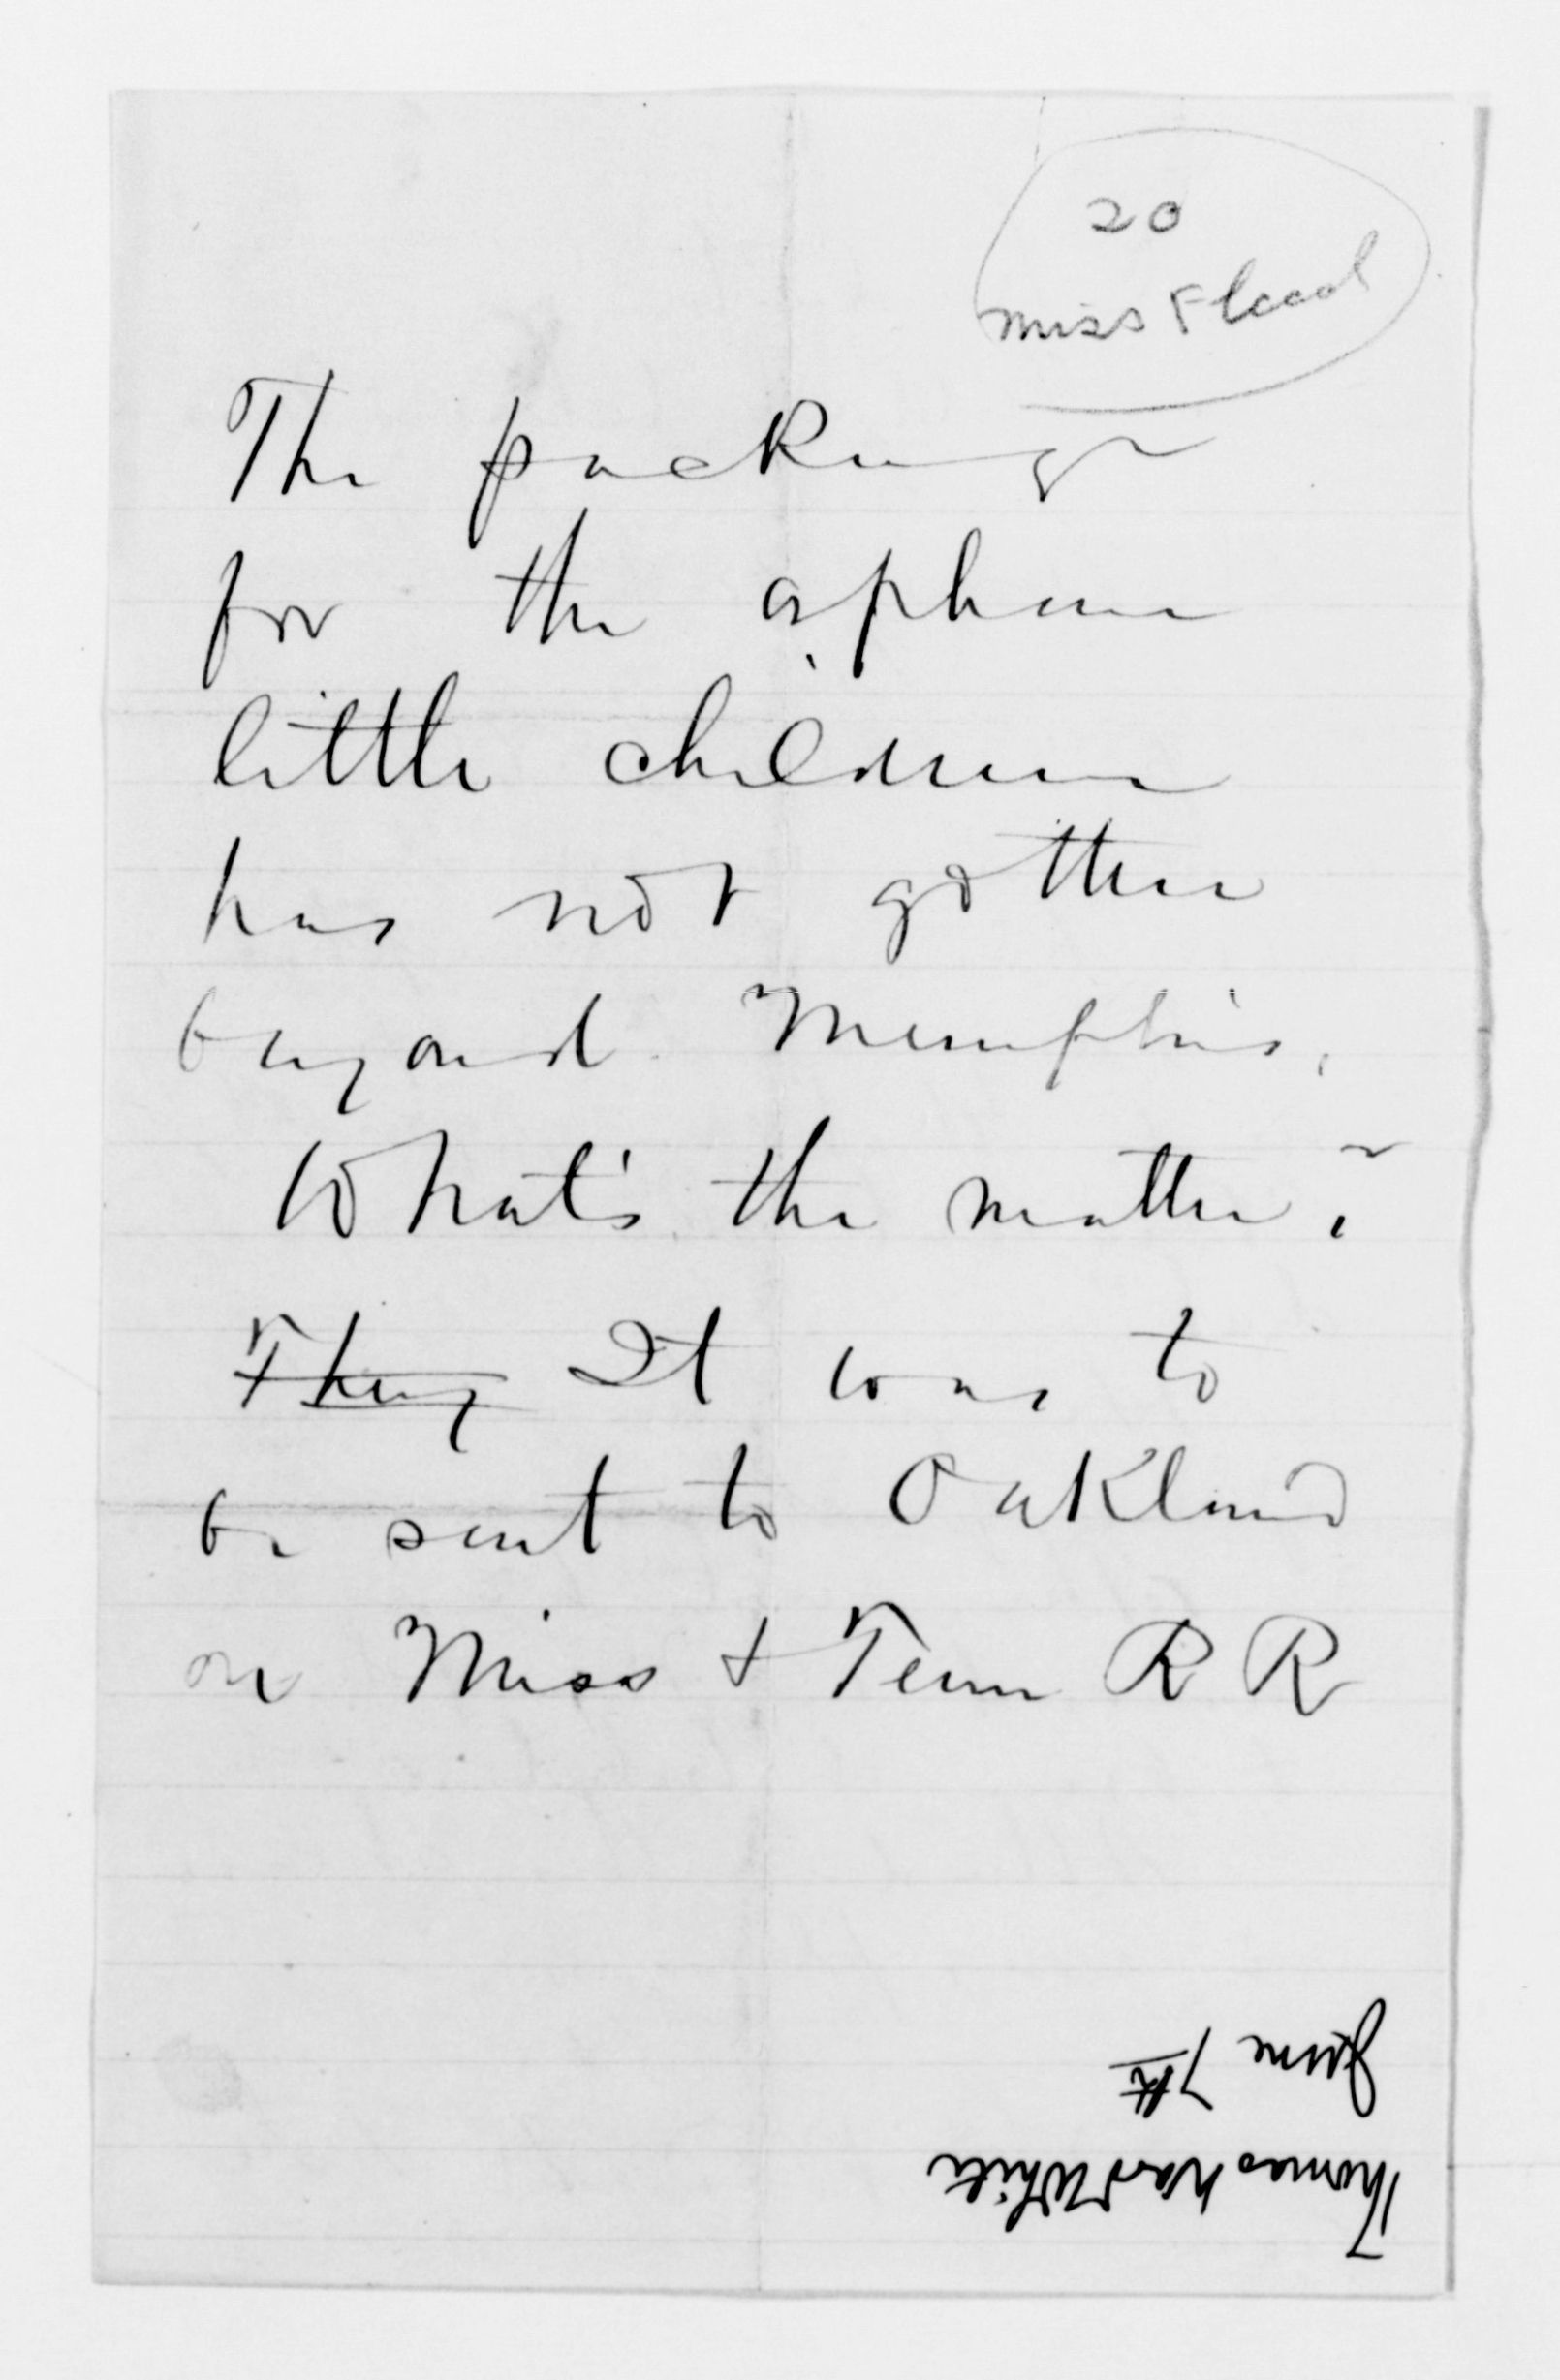 20
Miss Flood
The package
for the orphan
little children
has not gotten
beyond Memphis.
What's the matter?
They It was to
be sent to Oakland
on Miss & Tenn R R
June 7th
Thomas hard White